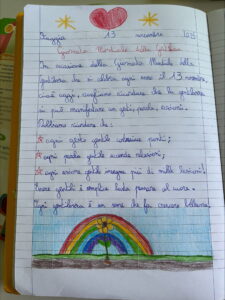 Foggia 13 novembre 2025
Giornata Mondiale della Gentilezza
In occasione della Giornata Mondiale della
gentilezza che si celebra ogni anno il 13 novembre,
oggi, vogliamo ricordare che la gentilezza
si può manifestare con gesti, parole, azioni.
Dobbiamo ricordare che:
ogni gesto gentile costruisce ponti;
ogni parola gentile accende relazioni;
ogni azione gentile insegna più di mille lezioni!
Essere gentili è semplice basta pensare al cuore.
Ogni gentilezza è un seme che fa crescere bellezza.